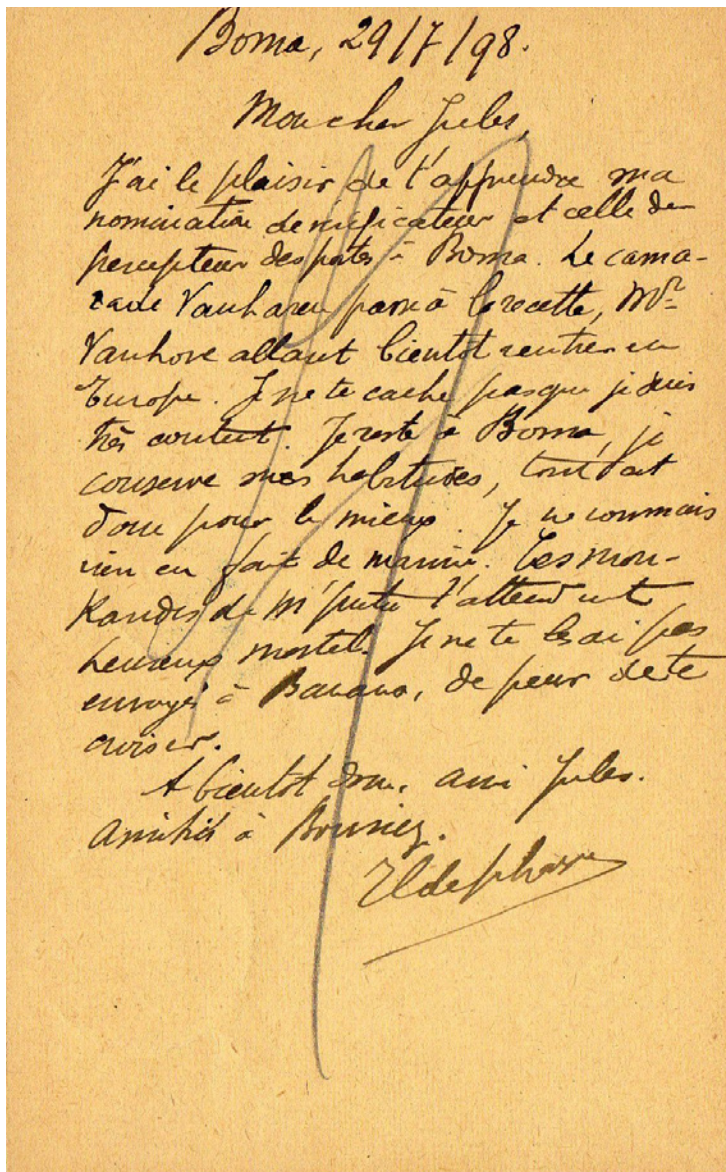 Boma, 29/7/98.
Mon cher Jules,
J'ai le plaisir de t'apprendre ma
nomination de vérificateur et celle de
percepteur des postes à Boma. Le cama-
rade Vanharen passe à la recette, Mr
Vanhove allant bientot rentrer en
Europe. Je ne te cache pas que je suis
très content. Je reste à Boma, je
conserve mes habitudes, tout est
donc pour le mieux. Je ne connais
rien en fait de marine. Tes mou-
kandes de M'putu t'attendent
heureux mortel. Je ne te les ai pas
envoyés à Banana, de peur de te
croiser.
A bientot donc, ami Jules.
Amitiés à
Ildephonse